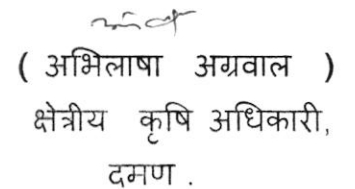 ( अभिलाषा अग्रवाल )
क्षेत्रीय कृषि अधिकारी,
दमण .